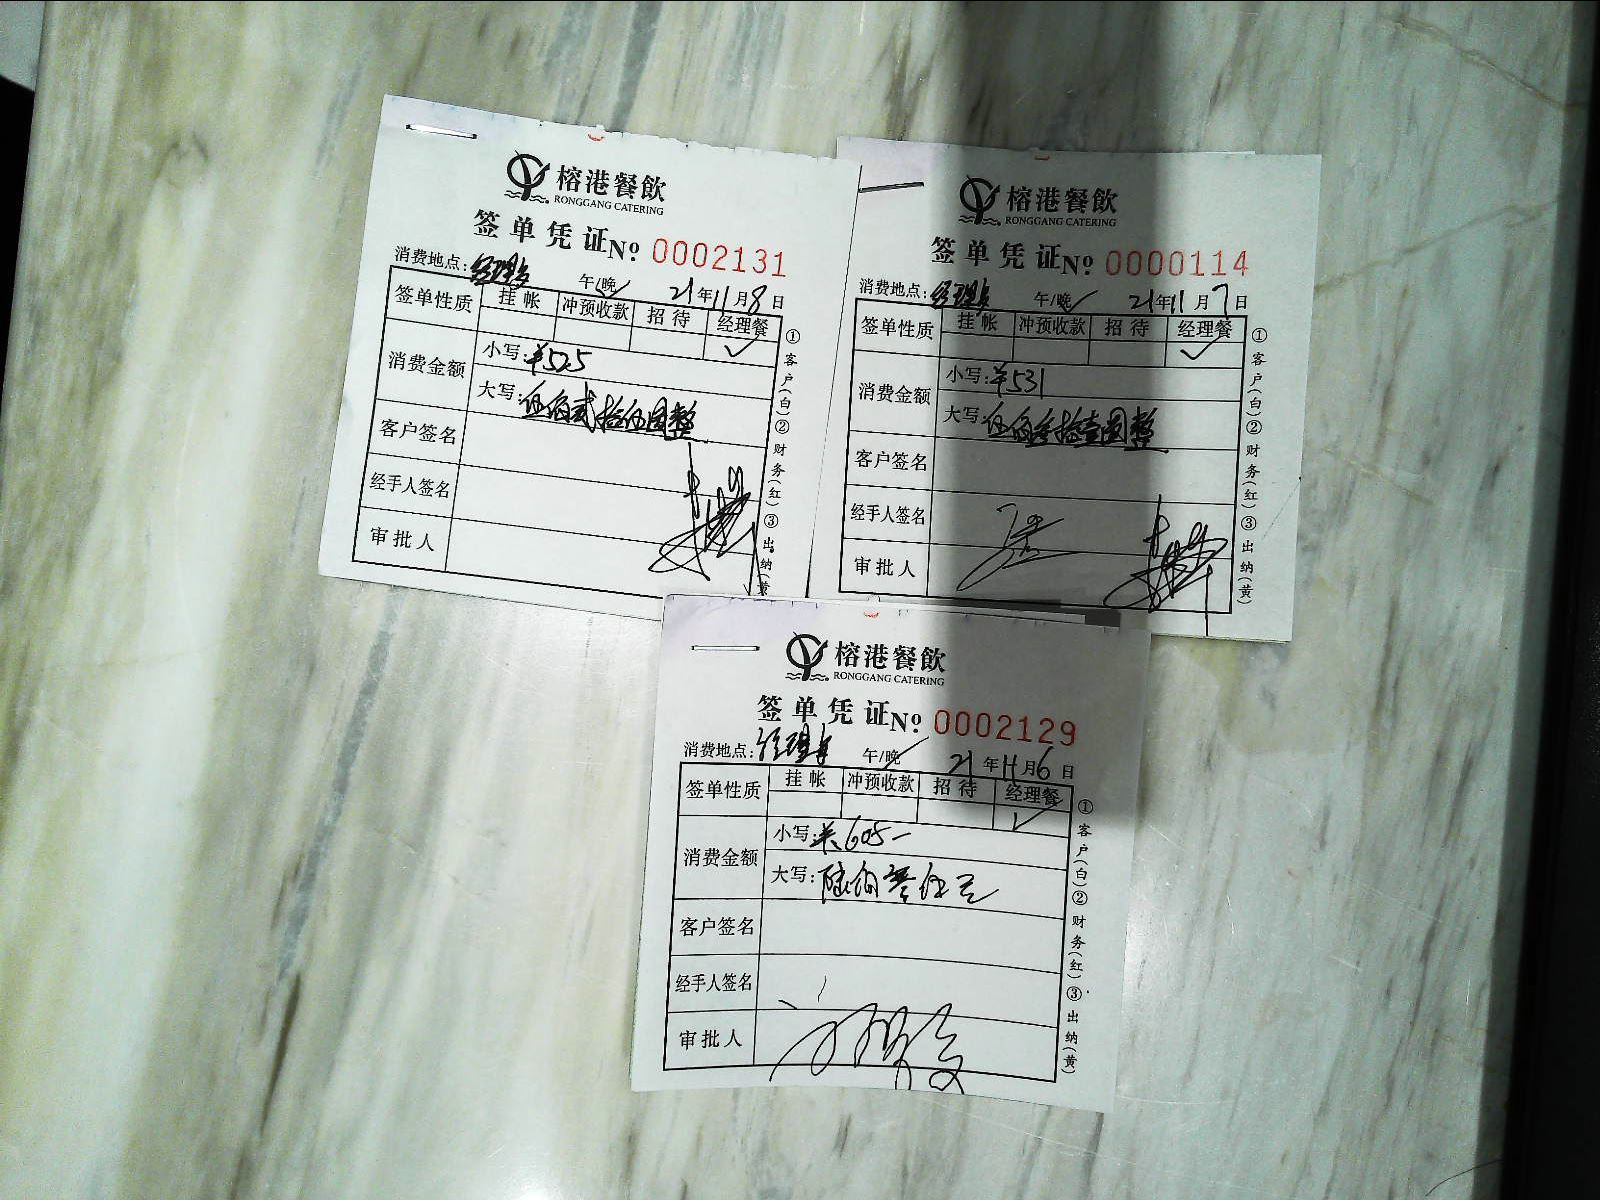 榕港餐飲
RONGGANG CATERING
签单凭证№ 0002131
消费地点:
午/晚 21年11月8日
签单性质 挂帐 冲预收款 招待 经理餐
消费金额
小写:¥525
大写:伍佰贰拾伍圆整
客户签名
经手人签名
审批人
①客户(白)②财务(红)③出纳(黄
榕港餐飲
RONGGANG CATERING
签单凭证№ 0000114
消费地点:
午/晚 21年11月7日
签单性质 挂帐 冲预收款 招待 经理餐
消费金额
小写:¥531
大写:伍佰叁拾壹圆整
客户签名
经手人签名
审批人
①客户(白)②财务(红)③出纳(黄)
榕港餐飲
RONGGANG CATERING
签单凭证№ 0002129
消费地点:
午/晚 21年11月6日
签单性质 挂帐 冲预收款 招待 经理餐
消费金额
小写:¥605
大写:陆佰零伍元
客户签名
经手人签名
审批人
①客户(白)②财务(红)③出纳(黄)